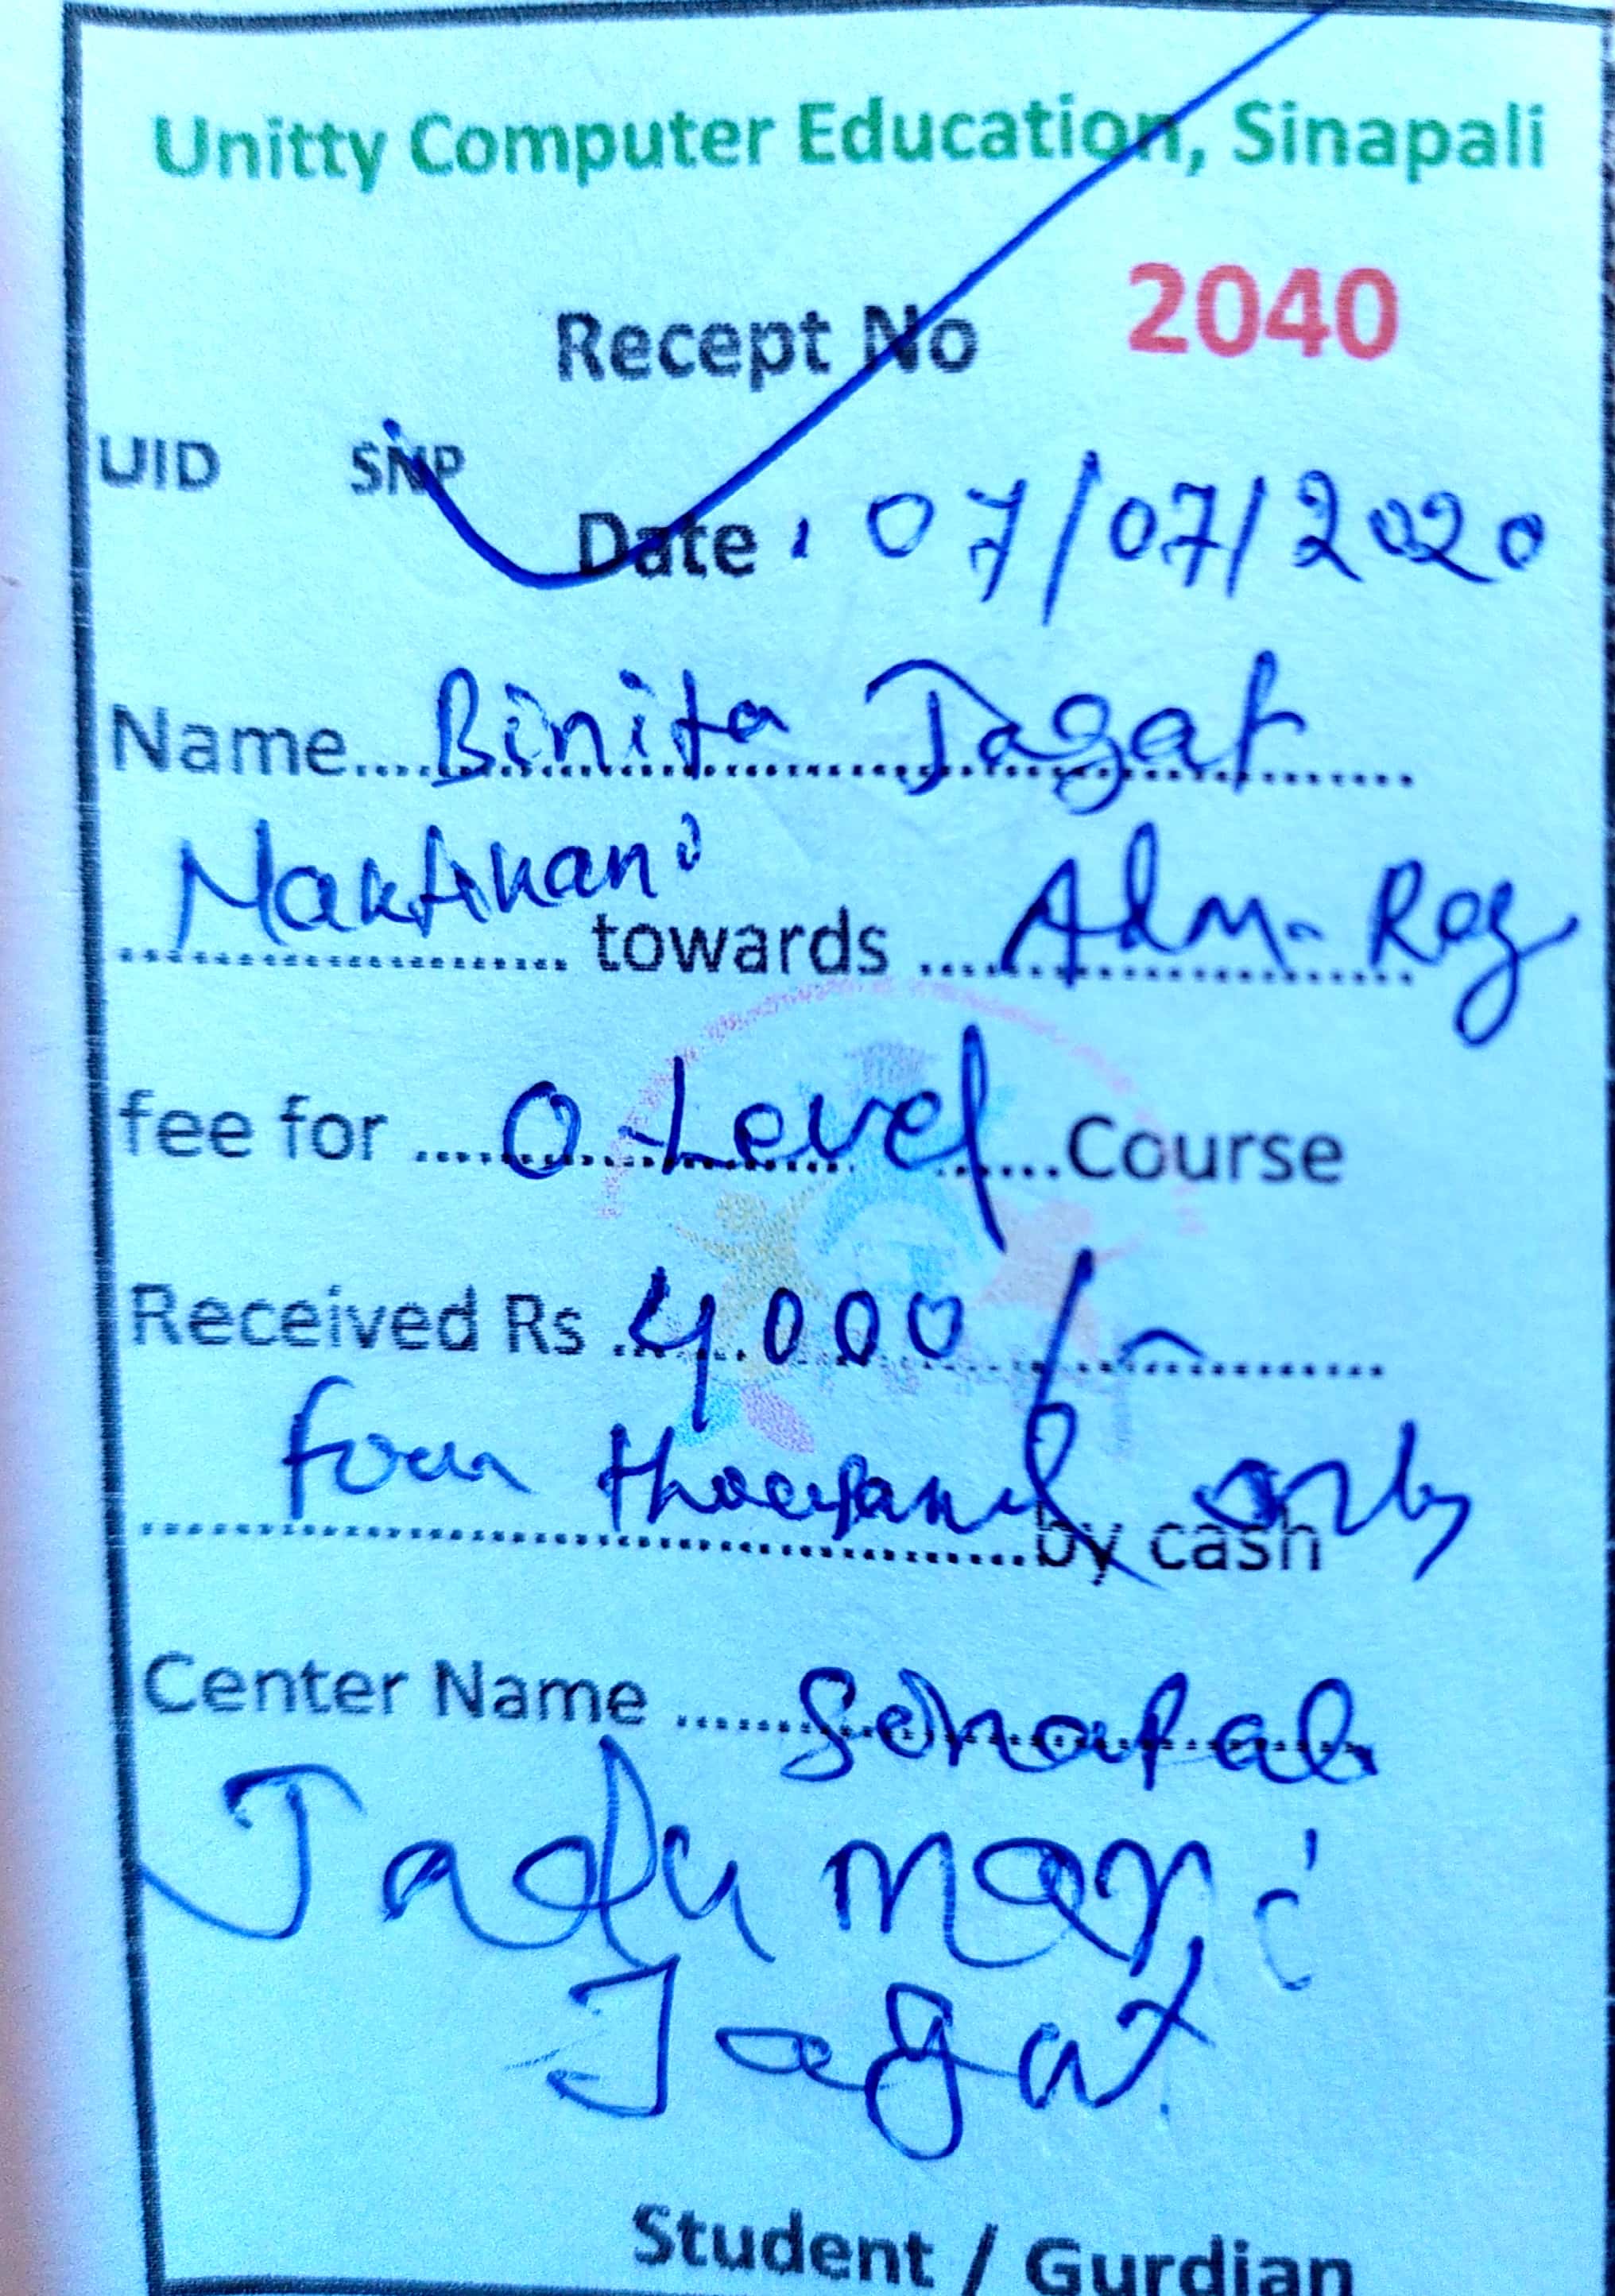 Unitty Computer Education, Sinapali
Recept No 2040
UID SNP
Date : 07/07/2020
Name.... Binita Jagat
Maktikani towards .... Adm. Reg
fee for .... O-Level ....Course
Received Rs ... 4000/-
four thousand only
by cash
Center Name .... Sinapali
Jadumani
Jagat
Student / Gurdian